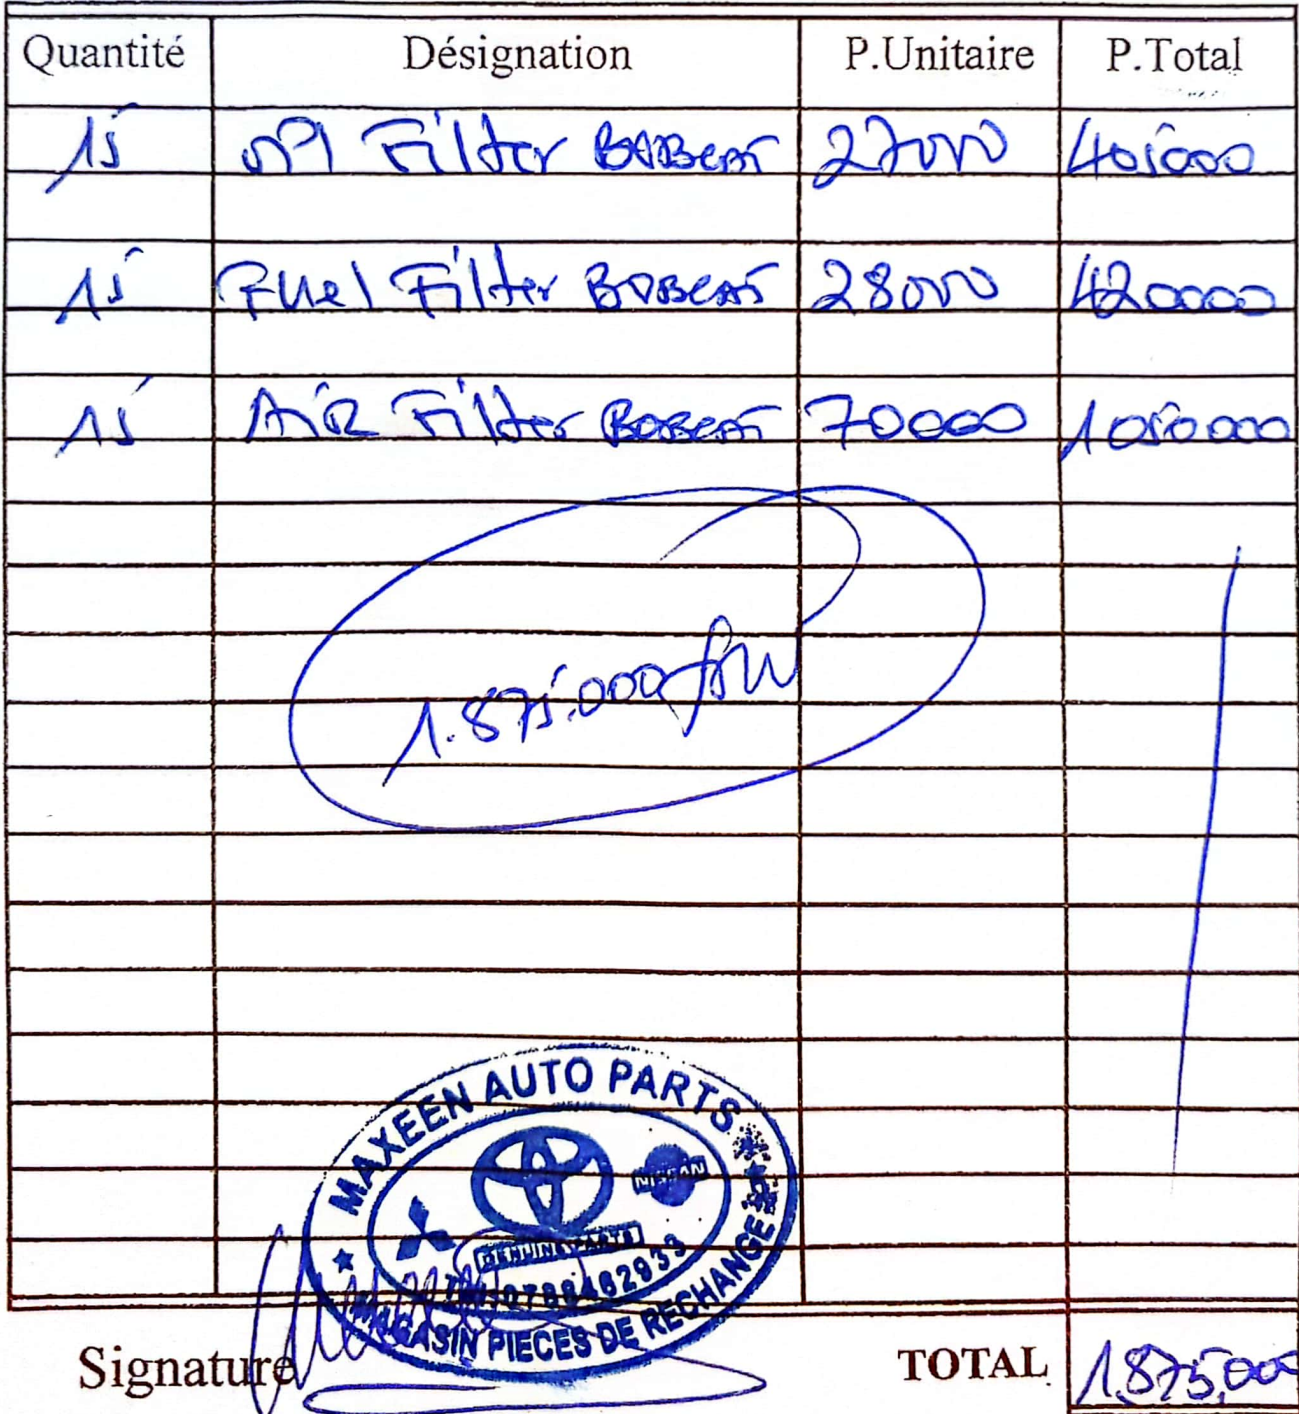 Quantité Désignation P.Unitaire P.Total
15 oil Filter Bobcat 27000 405000
15 Fuel Filter Bobcat 28000 420000
15 Air Filter Bobcat 70000 1050000
1.875.000 frw
MAXEEN AUTO PARTS
NISSAN
GENUINE PARTS
Tel: 0788462933
MAGASIN PIECES DE RECHANGE
Signature TOTAL 1.875,000